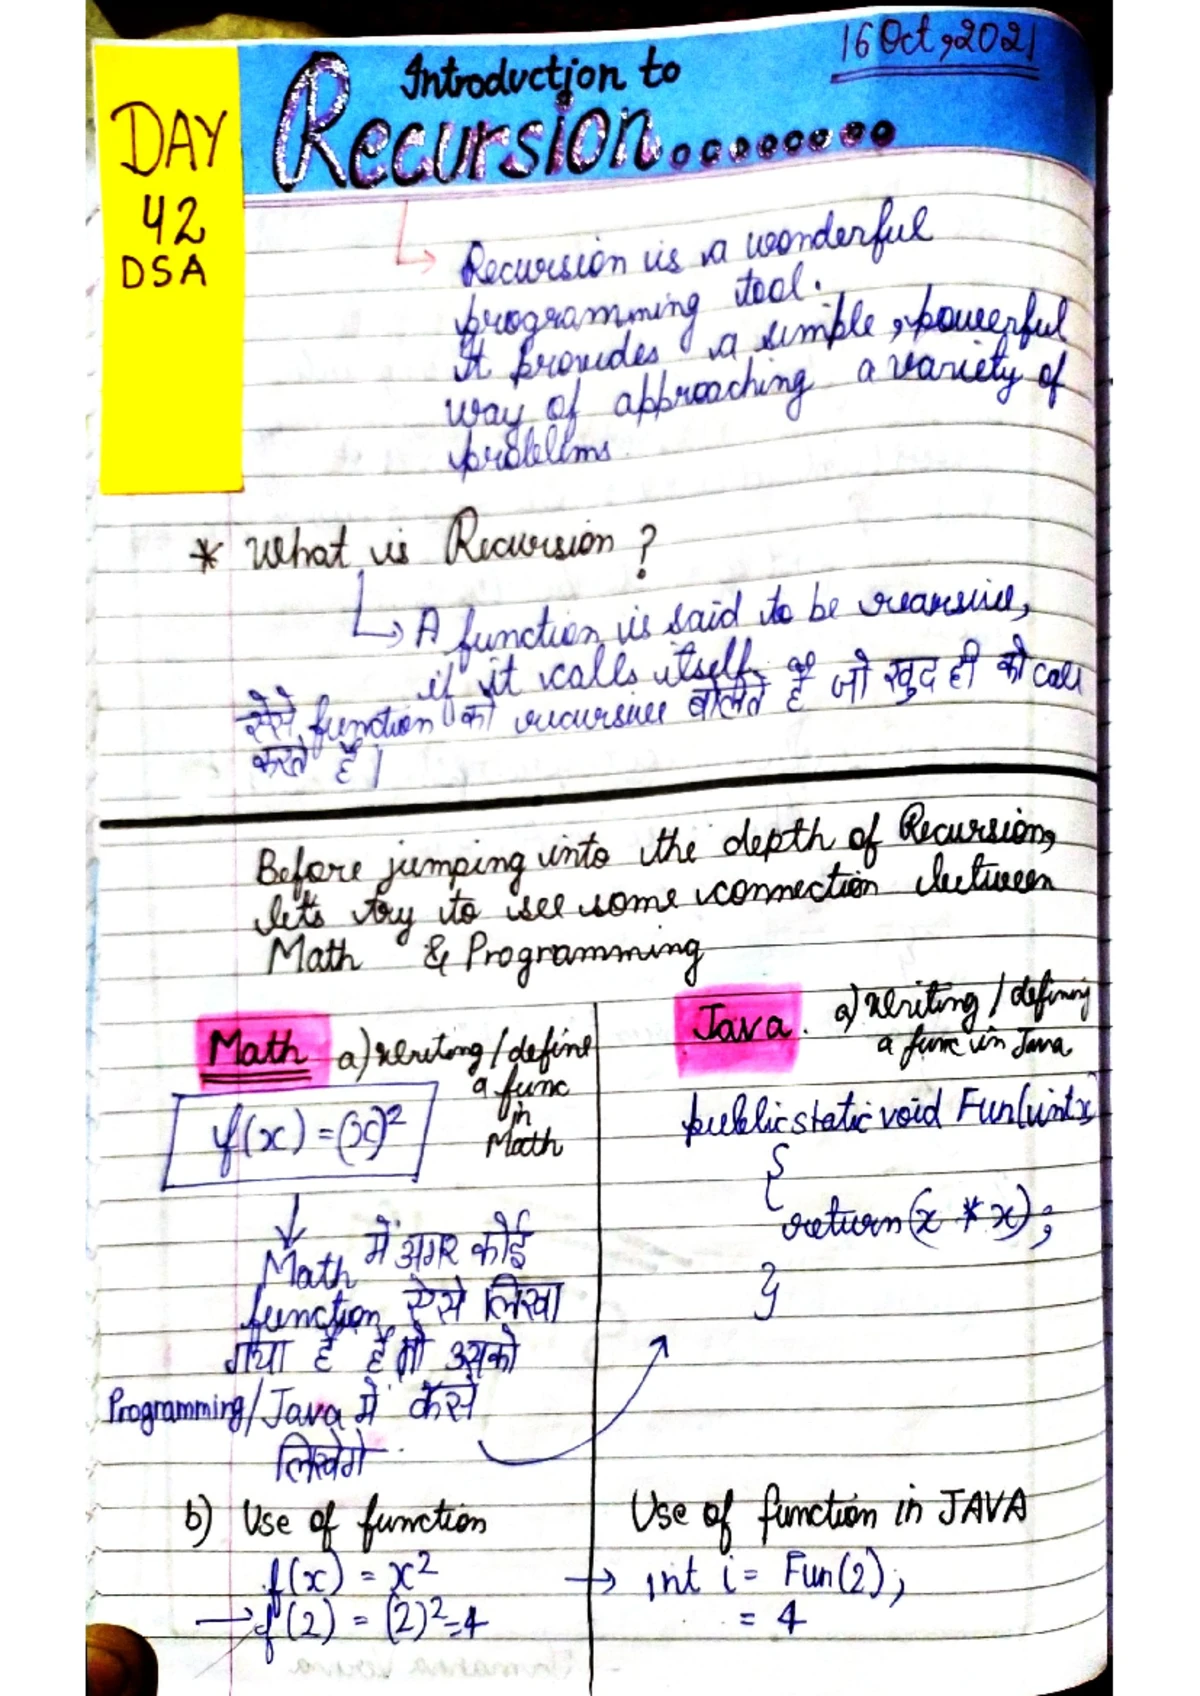 16 Oct, 2021
Introduction to
Recursion.........
DAY
42
DSA
Recursion is a wonderful
programming tool.
It provides a simple, powerful
way of approaching a variety of
problems
* What is Recursion ?
A function is said to be recursive,
if it calls itself.
ऐसे function को recursive बोलते हैं जो खुद ही को call
करते हैं।
Before jumping into the depth of Recursion,
let's try to see some connection between
Math & Programming
Math a) writing/define
a func
in
Math
f(x) = (x)²
Math में अगर कोई
function ऐसे लिखा
गया है तो उसको
Programming/Java में कैसे
लिखेंगे
Java. a) writing/defining
a func in Java
public static void Fun(int x)
{
return (x * x);
}
b) Use of function
f(x) = x²
→ f(2) = (2)² = 4
Use of function in JAVA
→ int i = Fun(2);
= 4